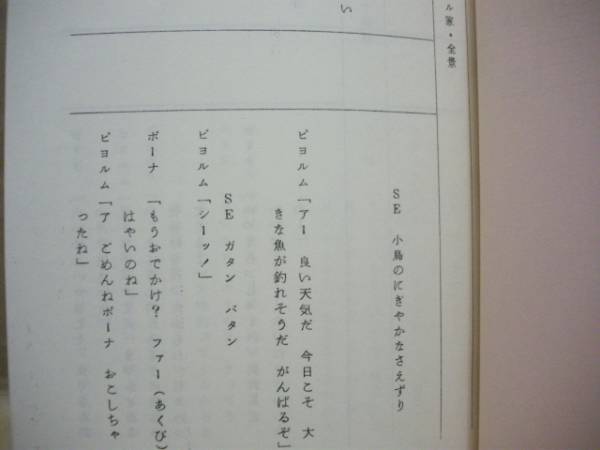 ル家・全景
SE 小鳥のにぎやかなさえずり
ビヨルム「アー 良い天気だ 今日こそ 大
きな魚が釣れそうだ がんばるぞ」
SE ガタン バタン
ビヨルム「シーッ!」
ボーナ 「もうおでかけ? ファー(あくび)
はやいのね」
ビヨルム「ア ごめんねボーナ おこしちゃ
ったね」
い